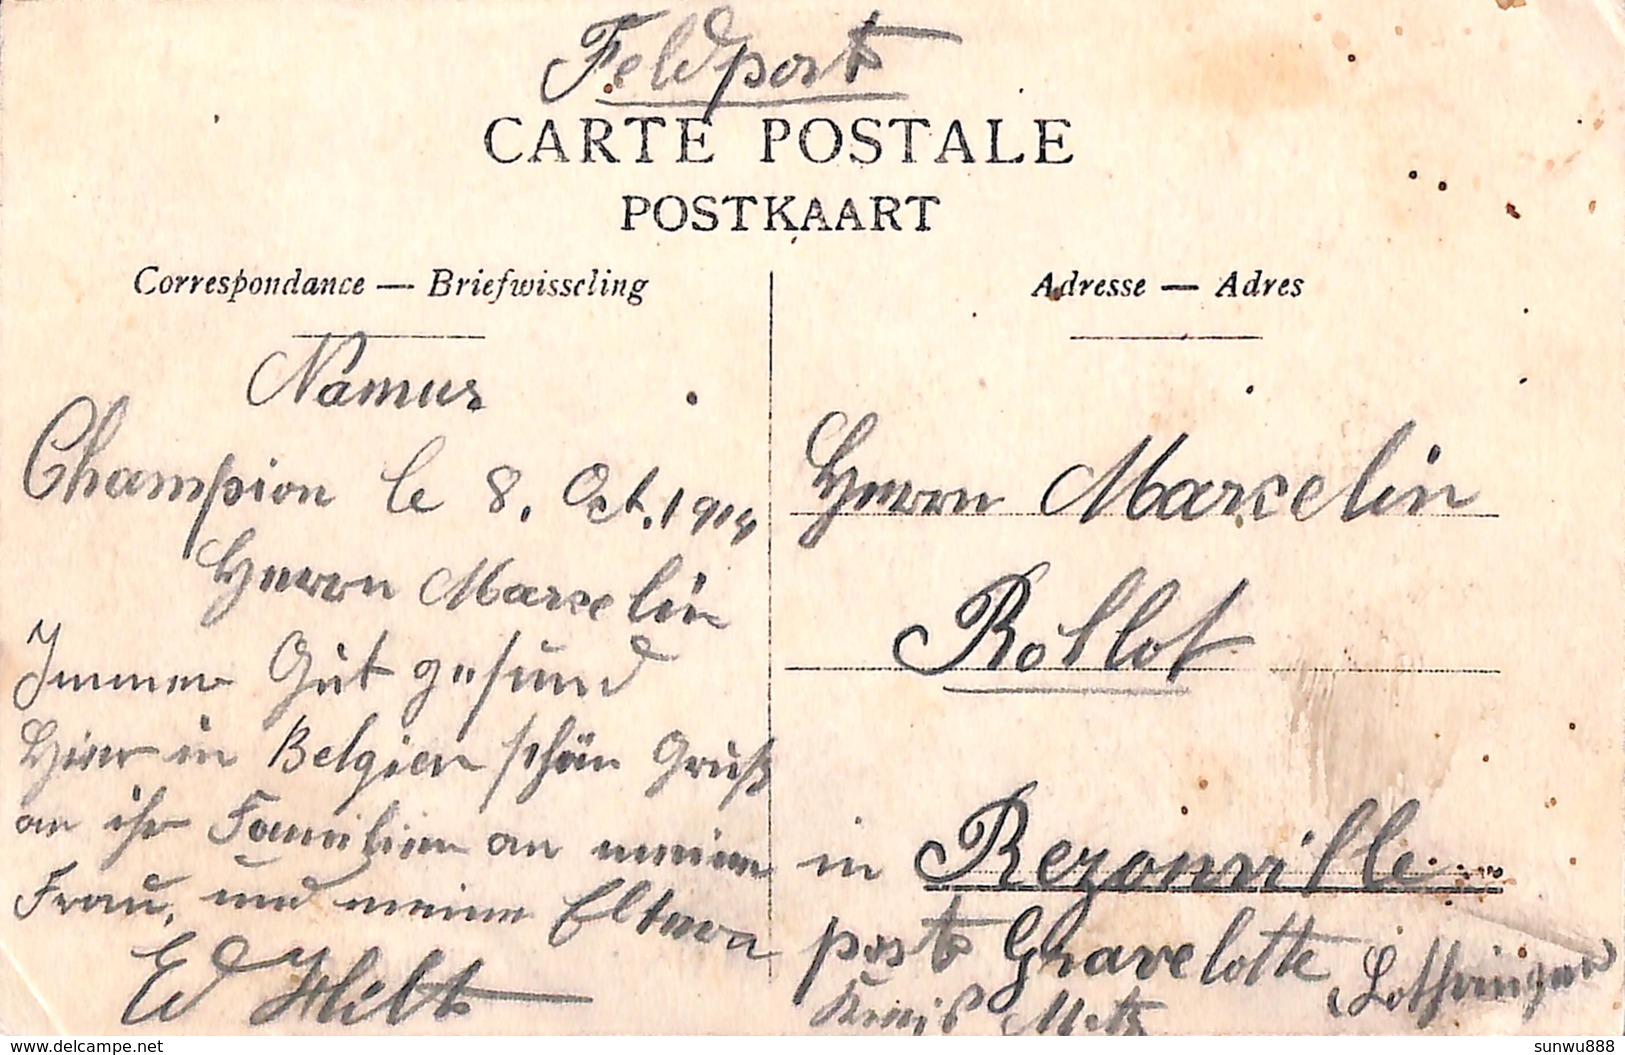 Feldpost
CARTE POSTALE
POSTKAART
Correspondance — Briefwisseling
Adresse — Adres
Namur
Champion le 8. Oct. 1914
Herrn Marcelin
Immer Gut gesund
Hier in Belgien schön Gruß
an ihr Familien an meine
Frau, und meine Eltern
Ed Hilt
Herrn Marcelin
Rollot
in Rezonville
post Gravelotte Lothringen
Kreis Metz
www.delcampe.net
sunwu888